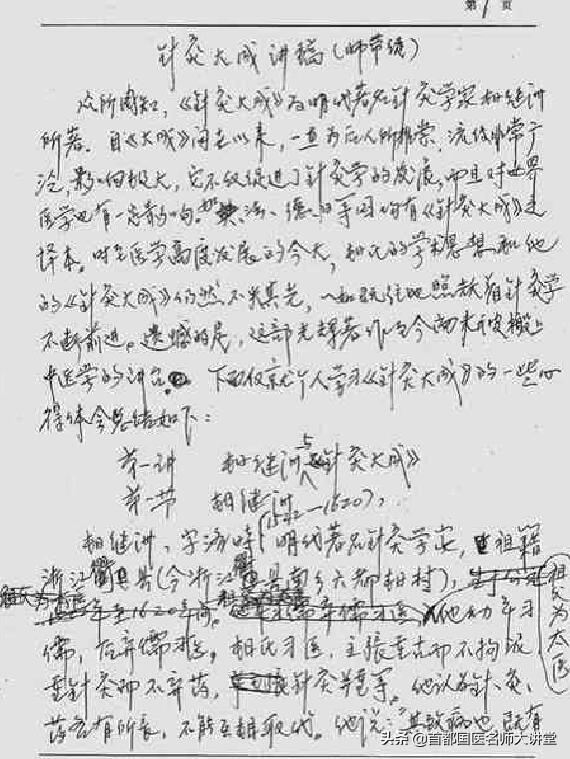 第1页
针灸大成讲稿(师带徒)
众所周知,《针灸大成》为明代著名针灸学家杨继洲
所著。自《大成》问世以来,一直为后人所推崇,流传非常广
泛,影响极大,它不仅促进了针灸学的发展,而且对世界
医学也有一定影响。如法、德、日等国均有《针灸大成》之
译本。时至医学高度发展的今天,杨氏的学术思想和他
的《针灸大成》仍然不失其光,一如既往地照耀着针灸学
不断前进。遗憾的是,这部光辉著作至今尚未被搬上
中医学的讲台。下面仅就个人学习《针灸大成》的一些心
得体会总结如下:
第一讲 杨继洲与《针灸大成》
第一节 杨继洲
(1522—1620),
杨继洲,字济时,明代著名针灸学家,祖籍
浙江衢县(今浙江衢县南乡六都杨村),
祖父为太医
他幼年习
儒,后弃儒习医。杨氏习医,主张重古而不拘泥
重针灸而不弃药,针灸并重等。他认为针、灸、
药各有所长,不能互相取代。他说:"其致病也,既有
头条@首都国医名师大讲堂